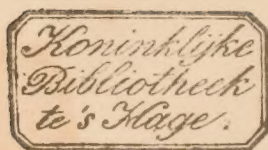 Koninklijke
Bibliotheek
te 's Hage.